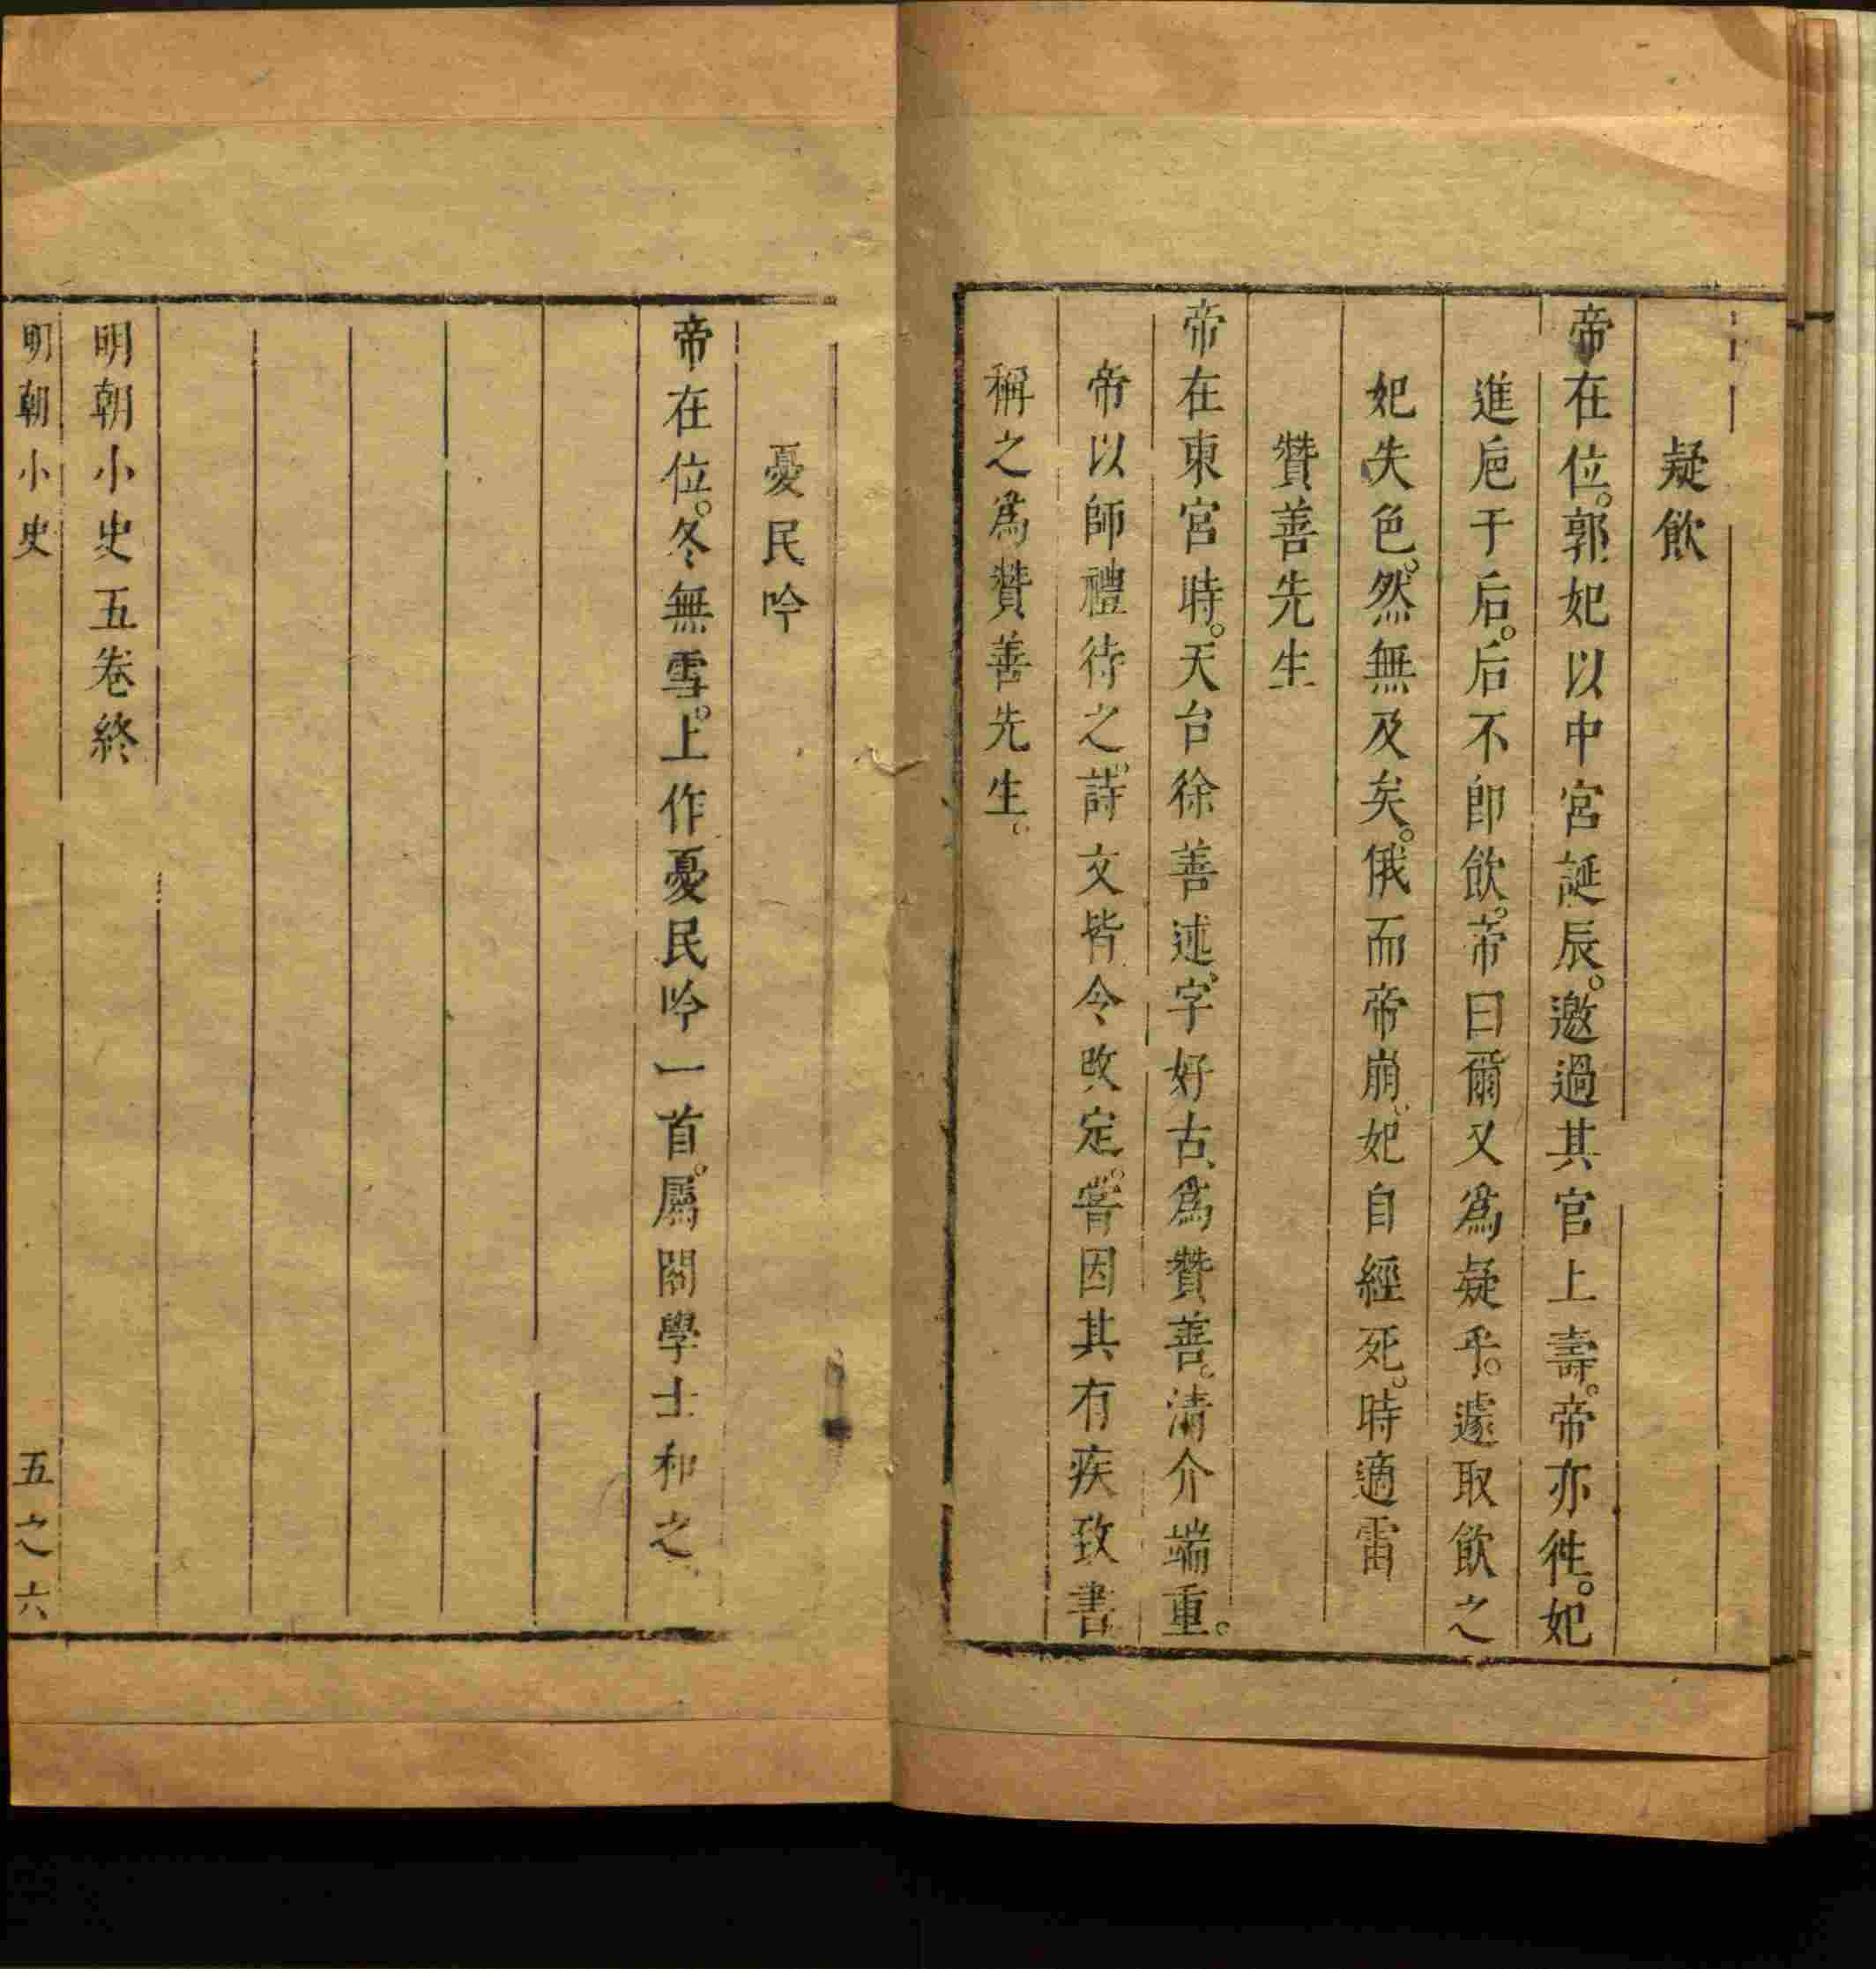 疑飲
帝在位。郭妃以中宮誕辰。邀過其宮上壽。帝亦徃。妃
進巵于后。后不卽飲。帝曰爾又爲疑乎。遽取飲之
妃失色。然無及矣。俄而帝崩。妃自經死。時適雷
贊善先生
帝在東宮時。天台徐善述、字好古、爲贊善。清介端重。
帝以師禮待之。詩文皆令改定。嘗因其有疾致書
稱之爲贊善先生。
憂民吟
帝在位。冬無雪。上作憂民吟一首。屬閣學士和之
明朝小史五卷終
明朝小史 五之六